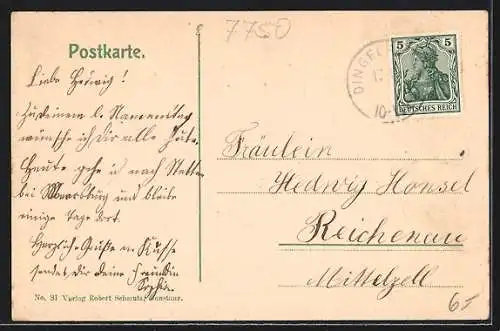 7750
Postkarte.
Liebe Hedwig!
Zu deinem l. Namenstag
wünsche ich dir alles Gute.
Heute gehe n. nach Stetten
bei Meersburg und bleibe
einige Tage dort.
Herzliche Grüße u. Küsse
sendet dir deine Freundin
Sophie.
DINGEL
10-
5 5
DEUTSCHES REICH
Fräulein
Hedwig Honsel
Reichenau
Mittelzell
61
No. 31 Verlag Robert Konstanz.